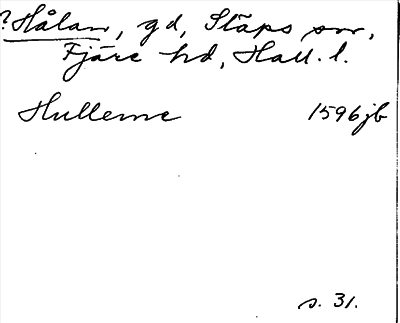 ?Hålan, gd, Släps sn,
Fjäre hd, Hall. l.
Hulleme 1596 jb
s. 31.